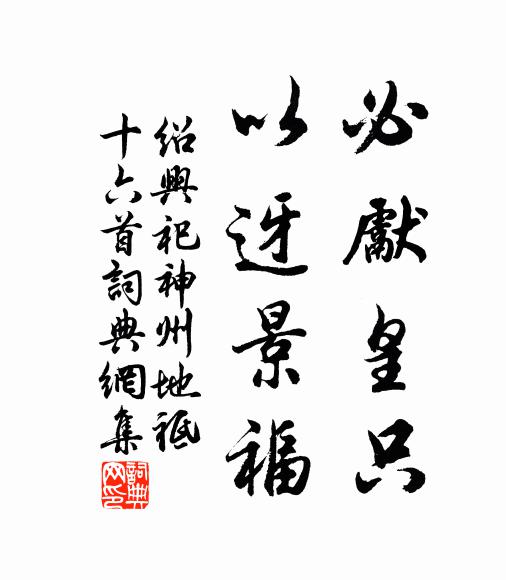 必獻皇只
以迓景福
紹興祀神州地祇
十六首詞典網集
詞典網印